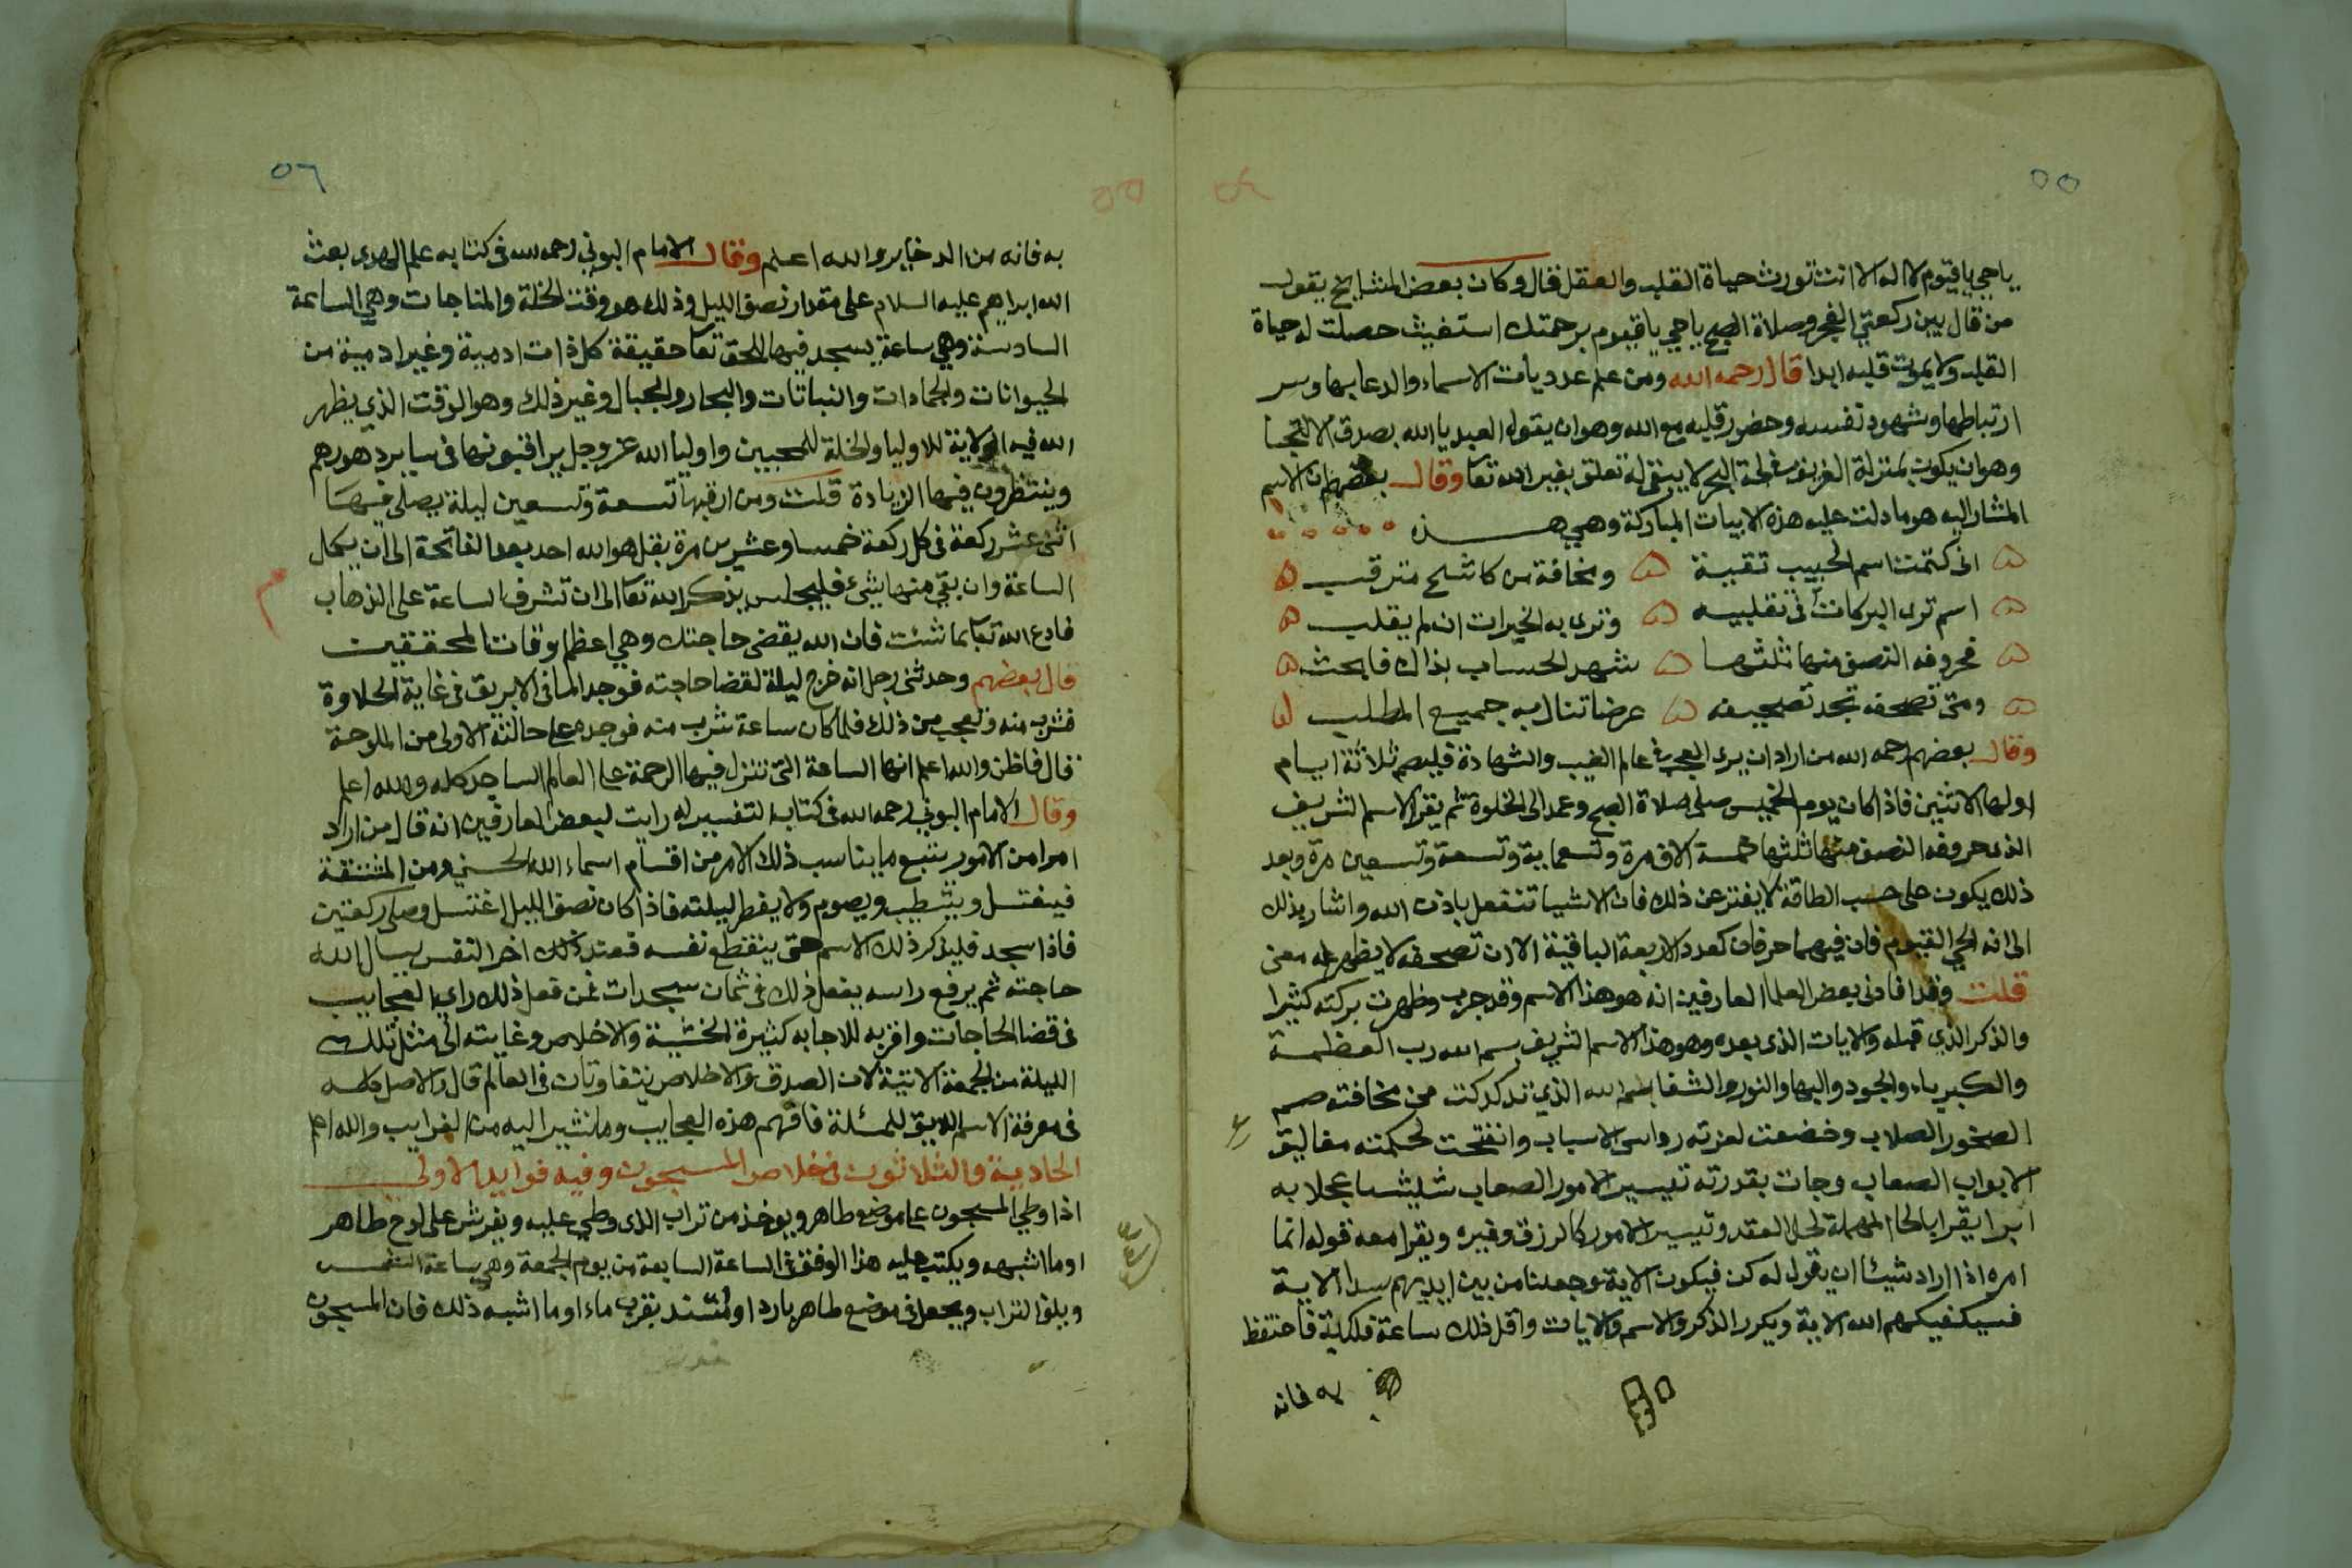 ٥٥
ياحي ياقيوم لا اله الا انت تورث حياة القلب والعقل قال وكان بعض المشايخ يقول
من قال بين ركعتي الفجر وصلاة الصبح ياحي ياقيوم برحمتك استغيث حصلت له حياة
القلب ولا يموت قلبه ابدا قال رحمه الله ومن علم عدديات الاسماء والدعا بها وسر
ارتباطها وشهود نفسه وحضور قلبه مع الله وهو ان يقول العبد يا الله بصدق الالتجا
وهو ان يكون بمنزلة الغريق في لجة البحر لا يبقى له تعلق بغير الله تعا وقال بعضهم ان الاسم
المشار اليه هو ما دلت عليه هذه الابيات المباركة وهي هذه
انى كتمت اسم الحبيب تقية ومخافة من كاشح مترقب
اسم ترى البركات في تقليبه وترى به الخيرات ان لم يقلب
فحروفه النصف منها ثلثها شهد الحساب بذاك فابحث
ومتى تصحفه تجد تصحيفه عرضا تنال به جميع المطلب
وقال بعضهم رحمه الله من اراد ان يرى العجب في عالم الغيب والشهادة فليصم ثلاثة ايام
اولها الاثنين فاذا كان يوم الخميس صلى صلاة الصبح وعمد الى الخلوة ثم يقرا الاسم الشريف
الذى حروفه النصف منها ثلثها خمسة الاف مرة وتسعماية وتسعة وتسعين مرة وبعد
ذلك يكون على حسب الطاقة لا يفتر عن ذلك فان الاشيا تنفعل باذن الله واشار بذلك
الى انه الحي القيوم فان فيهما حرفان كعدد الاربعة الباقية الا ان تصحفه لا يظهر له معنى
قلت وقد افادنى بعض العلما العارفين انه هو هذا الاسم وقد جرب وظهرت بركته كثيرا
والذكر الذي قبله والايات الذى بعده وهو هذا الاسم الشريف بسم الله رب العظمة
والكبرياء والجود والبها والنور والشفا بسم الله الذي تدكدكت من مخافته صم
الصخور الصلاب وخضعت لعزته رواسى الاسباب وانفتحت لحكمته مغاليق
الابواب الصعاب وجات بقدرته تيسير الامور الصعاب عجلا به
ابرا يقرا بالحا المهملة لحل العقد وتيسير الامور كالرزق وغيره ويقرا معه قوله انما
امره اذا اراد شيئا ان يقول له كن فيكون الاية وجعلنا من بين ايديهم سدا الاية
فسيكفيكهم الله الاية ويكرر الذكر والاسم والايات واقل ذلك ساعة فلكية فاحتفظ
به فانه
٥٦
به فانه من الدخاير والله اعلم وقال الامام البوني رحمه الله فى كتابه علم الهدى بعث
الله ابراهيم عليه السلام على مقدار نصف الليل وذلك هو وقت الخلة والمناجات وهي الساعة
السادسة وهي ساعة يسجد فيها للحق تعا حقيقة كل ذات ادمية وغير ادمية من
الحيوانات والجمادات والنباتات والبحار والجبال وغير ذلك وهو الوقت الذي يظهر
الله فيه الولاية للاوليا والخلة للمحبين واوليا الله عز وجل يراقبونها فى ساير دهورهم
وينتظرون فيها الزيادة قلت ومن ارقبها تسعة وتسعين ليلة يصلى فيها
اثنى عشر ركعة فى كل ركعة خمسا وعشرين مرة بقل هو الله احد بعد الفاتحة الى ان يكمل
الساعة وان بقي منها شئ فليجلس يذكر الله تعا الى ان تشرف الساعة على الذهاب
فادع الله تعا بما شئت فان الله يقضى حاجتك وهي اعظم اوقات المحققين
قال بعضهم وحدثنى رجل انه خرج ليلة لقضا حاجته فوجد الما فى الابريق فى غاية الحلاوة
فشرب منه وتعجب من ذلك فلما كان ساعة شرب منه فوجده على حالته الاولى من الملوحة
قال فاظن والله اعلم انها الساعة التى تتنزل فيها الرحمة على العالم الساجد كله والله اعلم
وقال الامام البوني رحمه الله فى كتابه التفسير له رايت لبعض العارفين انه قال من اراد
امرا من الامور يتبع ما يناسب ذلك الامر من اقسام اسماء الله الحسنى ومن المشتقة
فيغتسل ويتطيب ويصوم ولا يفطر ليلته فاذا كان نصف الليل اغتسل وصلى ركعتين
فاذا سجد فليذكر ذلك الاسم حتى ينقطع نفسه فعند ذلك اخر النفس يسال الله
حاجته ثم يرفع راسه يفعل ذلك فى ثمان سجدات فمن فعل ذلك راى العجايب
فى قضا الحاجات واقربه للاجابه كثيرة الخشية والاخلاص وغايته الى مثل تلك
الليلة من الجمعة الاتية لان الصدق والاخلاص يتفاوتان فى العالم قال والاصل كله
فى معرفة الاسم اللايق للمسئلة فافهم هذه العجايب وما نشير اليه من الغرايب والله اعلم
الحادية والثلاثون فى خلاص المسجون وفيه فوايد الاولى
اذا وطي المسجون على موضع طاهر ويوخذ من تراب الذى وطي عليه ويفرش على لوح طاهر
او ما اشبهه ويكتب عليه هذا الوفق فى الساعة السابعة من يوم الجمعة وهي ساعة الشمس
ويلق التراب ويجعل فى موضع طاهر بارد او لتند بقرب ماء او ما اشبه ذلك فان المسجون